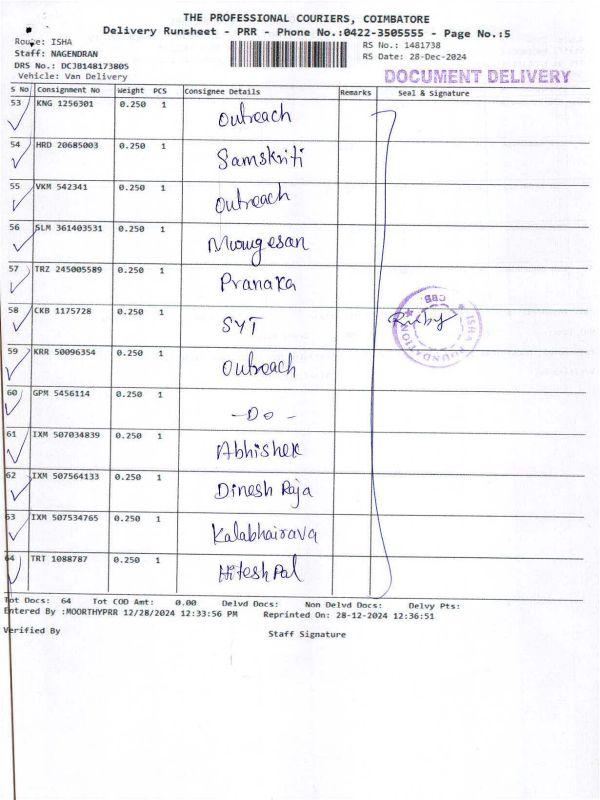 THE PROFESSIONAL COURIERS, COIMBATORE
Delivery Runsheet - PRR - Phone No.:0422-3505555 - Page No.:5
Route: ISHA
Staff: NAGENDRAN
DRS No.: DCJB148173805
Vehicle: Van Delivery
RS No.: 1481738
RS Date: 28-Dec-2024
DOCUMENT DELIVERY
S No Consignment No Weight PCS Consignee Details Remarks Seal & Signature
53 KNG 1256301 0.250 1 Outreach
54 HRD 20685003 0.250 1 Samskriti
55 VKM 542341 0.250 1 Outreach
56 SLM 361403531 0.250 1 Murugesan
57 TRZ 245005589 0.250 1 Pranaka
58 CKB 1175728 0.250 1 SYT
ISHA FOUNDATION CBB.
Ruby
59 KRR 50096354 0.250 1 Outreach
60 GPM 5456114 0.250 1 -Do-
61 IXM 507034839 0.250 1 Abhishek
62 IXM 507564133 0.250 1 Dinesh Raja
63 IXM 507534765 0.250 1 Kalabhairava
64 TRT 1088787 0.250 1 Hitesh Pal
Tot Docs: 64 Tot COD Amt: 0.00 Delvd Docs: Non Delvd Docs: Delvy Pts:
Entered By :MOORTHYPRR 12/28/2024 12:33:56 PM Reprinted On: 28-12-2024 12:36:51
Verified By Staff Signature